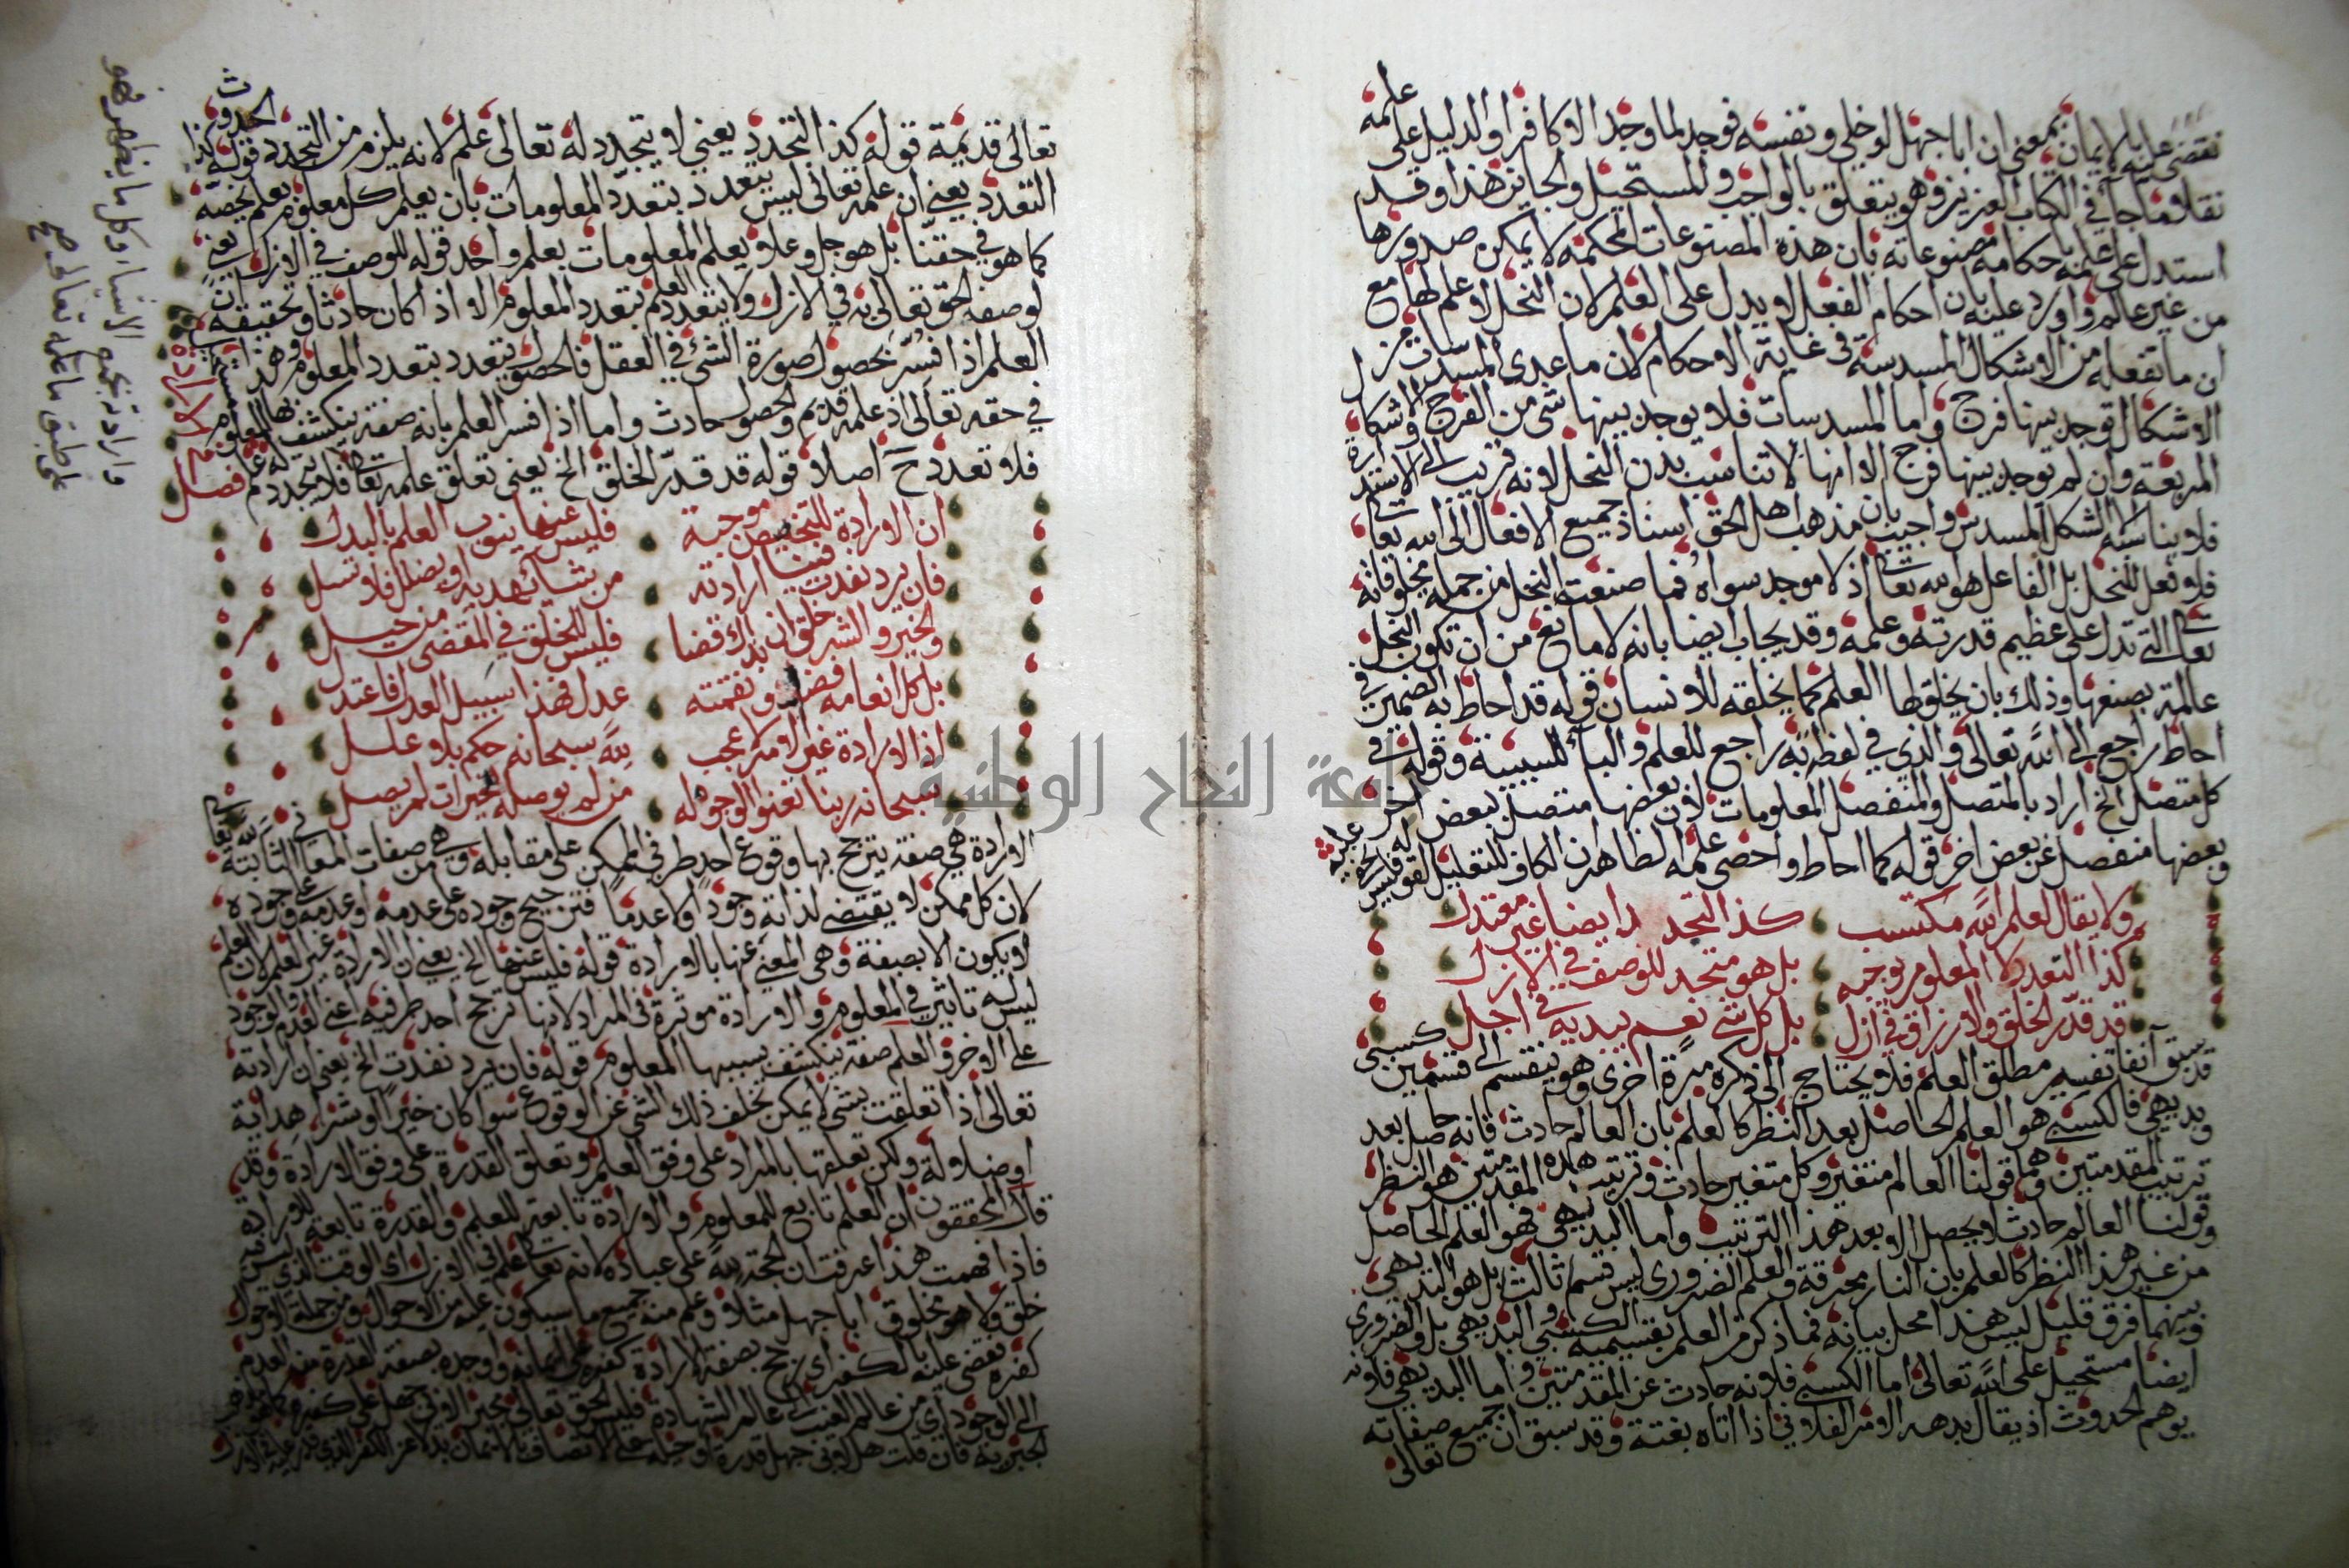 نقضي عليه بالايمان بمعنى ان ابا جهل لو خلي ونفسه فوجد لما وجد الا كافرا والدليل على علمه
نقلا ما جا في الكتاب العزيز وهو يتعلق بالواجب والمستحيل والجايز هذا وقد
استدل على علمه باحكامه مصنوعاته بان هذه المصنوعات المحكمة لا يمكن صدورها
من غير عالم واورد عليه بان احكام الفعل لا يدل على العلم لان النحل لا علم لها مع
ان ما تفعله من الاشكال المسدسة في غاية الاحكام لان ما عدى المسدسات من
الاشكال توجد بينها فرج واما المسدسات فلا يوجد بينها شي من الفرج والاشكال
المربعة وان لم توجد بينها فرج الا انها لا تناسب بدن النحل لانه قريب الى الاستدارة
فلا يناسبه الشكل المسدس واجيب بان مذهب اهل الحق اسناد جميع الافعال الى الله تعالى
فلا فعل للنحل بل الفاعل هو الله تعالى اذ لا موجد سواه فما صنعت النحل من جملة مخلوقاته
تعالى التي تدل على عظيم قدرته وعلمه وقد يجاب ايضا بانه لا مانع من ان تكون النحل
عالمة بصنعها وذلك بان يخلق لها العلم كما يخلقه للانسان قوله قد احاط به الضمير في
احاط راجع الى الله تعالى والذي في لفظ به راجع للعلم والباء للسببية وقوله في
كل متصل الخ اراد بالمتصل والمنفصل المعلومات لان بعضها متصل ببعض اخر
وبعضها منفصل عن بعض اخر قوله كما احاط واحصى علمه الظاهر ان الكاف للتعليل لقوله فليس
ولا يقال لعلم الله مكتسب كذا التجدد ايضا غير معتدل
كذا التعدد لا المعلوم يوجبه بل هو متحد للوصف في الازل
قد قدر الخلق والارزاق في ازل بل كل شي نعم يبديه في اجل
قد سبق آنفا تفسير مطلق العلم فلا يحتاج الى ذكره مرة اخرى وهو ينقسم الى قسمين كسبي
وبديهي فالكسبي هو العلم الحاصل بعد النظر كالعلم بان العالم حادث فانه حاصل بعد
ترتيب المقدمتين وهما قولنا العالم متغير وكل متغير حادث وترتيب هذه المقدمتين هو النظر
وقولنا العالم حادث لا يحصل الا بعد هذا الترتيب واما البديهي فهو العلم الحاصل
من غير هذا النظر كالعلم بان النار محرقة والعلم الضروري ليس قسم ثالث بل هو البديهي
وبينهما فرق قليل ليس هذا محل بيانه فما ذكر من العلم بقسيميه الكسبي والبديهي بل والضروري
ايضا مستحيل على الله تعالى اما الكسبي فلانه حادث عن المقدمتين واما البديهي فلانه
يوهم الحدوث اذ يقال بدهه الامر الفلاني اذا اتاه بغتة وقد سبق ان جميع صفاته
تعالى
تعالى قديمة قوله كذا التجدد يعني لا يتجدد له تعالى علم لانه يلزم من التجدد الحدوث قوله كذا
التعدد يعني ان علمه تعالى ليس يتعدد بتعدد المعلومات بان يعلم كل معلوم بعلم يخصه
كما هو في حقنا بل هو جل وعلا يعلم المعلومات بعلم واحد قوله للوصف في الازل يعني
لوصف الحق تعالى به في الازل ولا يتعدد العلم بتعدد المعلوم الا اذا كان حادثا وتحقيقه ان
العلم اذا فسر بحصول صورة الشي في العقل فالحصول يتعدد بتعدد المعلوم وهذا مستحيل
في حقه تعالى اذ علمه قديم والحصول حادث واما اذا فسر العلم بانه صفة ينكشف بها المعلوم
فلا تعدد ح اصلا قوله قد قدر الخلق الخ يعني تعلق علمه تعالى فلا يتجدد له علم فصل
في الارادة
ان الارادة للتخصيص موجبة فليس عنها ينوب العلم بالبدل
فان يرد نفذت فينا ارادته من يشا يهديه او يضلل فلا تسل
والخير والشر خلق ان بذاك قضا فليس للخلق في المقضي من حيل
بل كل انعامه فضل ونقمته عدل فهذا سبيل العدل فاعتدل
اذا الارادة غير الامر لا عجب لله سبحانه حكم بلا علل
سبحانه ربنا تعنو الوجوه له من لم يوصله الخيرات لم يصل
الارادة هي صفة يترجح بها وقوع احد طرفي الممكن على مقابله وهي من صفات المعاني الثابتة لله تعالى
لان كل ممكن لا يقتضي لذاته وجودا ولا عدما فترجيح وجوده على عدمه او عدمه على وجوده
لا يكون الا بصفة وهي المعني عنها بالارادة قوله فليس عنها الخ يعني ان الارادة غير العلم لان العلم
ليس له تاثير في المعلوم والارادة موثرة في المراد لانها ترجح احد طرفيه اعني العدم والوجود
على الاخر والعلم صفة ينكشف بسببها المعلوم قوله فان يرد نفذت الخ يعني ان ارادته
تعالى اذا تعلقت بشي لا يمكن تخلف ذلك الشي عن الوقوع سوا كان خيرا او شرا هداية
او ضلالة ولكن تعلقها بالمراد على وفق العلم وتعلق القدرة على وفق الارادة وقد
قال المحققون ان العلم تابع للمعلوم والارادة تابعة للعلم والقدرة تابعة للارادة
فاذا فهمت هذا عرفت ان الحجة لله على عباده لانه تعالى علم في الازل اي الوقت الذي ليس فيه
خلق ولا هو مخلوق ابا جهل مثلا وعلم منه جميع ما سيكون عليه من الاحوال ومن جملة الاحوال
كفره فقضى عليه بالكفر اي رجح بصفة الارادة كفره على ايمانه واوجده بصفة القدرة من العدم
الى الوجود اي من عالم الغيب الى عالم الشهادة فليس الحق تعالى مجبرا لابي جهل على كفره
لجبريه فان قلت هل لابي جهل قدرة او حيلة على الاتصاف بالايمان بدلا عن الكفر الذي قدر عليه في الازل
وارادته بجميع الاشياء وكل ما يظهر فهو
على طبق ما علمه تعالى صح
جامعة النجاح الوطنية